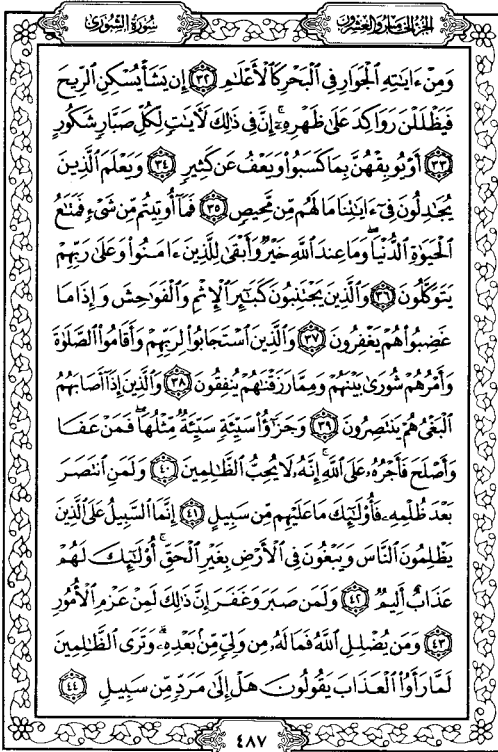 سُورَةُ الشُّورَىٰ
الجُزءُ الخَامِسُ وَالعِشرُونَ
وَمِنْ ءَايَـٰتِهِ الْجَوَارِ فِى الْبَحْرِ كَالْأَعْلَـٰمِ ٣٢ إِن يَشَأْ يُسْكِنِ الرِّيحَ
فَيَظْلَلْنَ رَوَاكِدَ عَلَىٰ ظَهْرِهِۦٓ ۚ إِنَّ فِى ذَٰلِكَ لَأَيَـٰتٍ لِّكُلِّ صَبَّارٍ شَكُورٍ
٣٣ أَوْ يُوبِقْهُنَّ بِمَا كَسَبُوا۟ وَيَعْفُ عَن كَثِيرٍ ٣٤ وَيَعْلَمَ الَّذِينَ
يُجَـٰدِلُونَ فِىٓ ءَايَـٰتِنَا مَا لَهُم مِّن مَّحِيصٍ ٣٥ فَمَآ أُوتِيتُم مِّن شَىْءٍ فَمَتَـٰعُ
الْحَيَوٰةِ الدُّنْيَا ۖ وَمَا عِندَ اللَّهِ خَيْرٌ وَأَبْقَىٰ لِلَّذِينَ ءَامَنُوا۟ وَعَلَىٰ رَبِّهِمْ
يَتَوَكَّلُونَ ٣٦ وَالَّذِينَ يَجْتَنِبُونَ كَبَـٰٓئِرَ الْإِثْمِ وَالْفَوَٰحِشَ وَإِذَا مَا
غَضِبُوا۟ هُمْ يَغْفِرُونَ ٣٧ وَالَّذِينَ اسْتَجَابُوا۟ لِرَبِّهِمْ وَأَقَامُوا۟ الصَّلَوٰةَ
وَأَمْرُهُمْ شُورَىٰ بَيْنَهُمْ وَمِمَّا رَزَقْنَـٰهُمْ يُنفِقُونَ ٣٨ وَالَّذِينَ إِذَآ أَصَابَهُمُ
الْبَغْىُ هُمْ يَنتَصِرُونَ ٣٩ وَجَزَٰٓؤُا۟ سَيِّئَةٍ سَيِّئَةٌ مِّثْلُهَا ۖ فَمَنْ عَفَا
وَأَصْلَحَ فَأَجْرُهُۥ عَلَى اللَّهِ ۚ إِنَّهُۥ لَا يُحِبُّ الظَّـٰلِمِينَ ٤٠ وَلَمَنِ انتَصَرَ
بَعْدَ ظُلْمِهِۦ فَأُو۟لَـٰٓئِكَ مَا عَلَيْهِم مِّن سَبِيلٍ ٤١ إِنَّمَا السَّبِيلُ عَلَى الَّذِينَ
يَظْلِمُونَ النَّاسَ وَيَبْغُونَ فِى الْأَرْضِ بِغَيْرِ الْحَقِّ ۚ أُو۟لَـٰٓئِكَ لَهُمْ
عَذَابٌ أَلِيمٌ ٤٢ وَلَمَن صَبَرَ وَغَفَرَ إِنَّ ذَٰلِكَ لَمِنْ عَزْمِ الْأُمُورِ
٤٣ وَمَن يُضْلِلِ اللَّهُ فَمَا لَهُۥ مِن وَلِىٍّ مِّنۢ بَعْدِهِۦ ۗ وَتَرَى الظَّـٰلِمِينَ
لَمَّا رَأَوُا۟ الْعَذَابَ يَقُولُونَ هَلْ إِلَىٰ مَرَدٍّ مِّن سَبِيلٍ ٤٤
٤٨٧